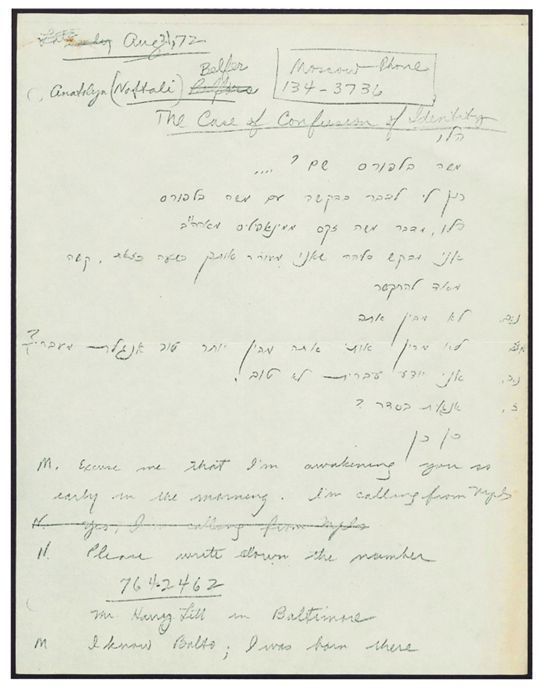 Aug 31, 72
Belfer
Anatolyn (Naftali)
Moscow Phone
134-3736
The Case of Confusion of Identity
הלו
משה בלפורס שם? ....
נתן לי לדבר בבקשה עם משה בלפורס
הלו, מדבר משה זקס ממינאפוליס מארה"ב
אני מבקש סליחה שאני מעורר אותך בשעה כזאת, קשה
מאד להתקשר
לא מבין אתה
אתה מבין יותר טוב אנגלית מעברית?
אני יודע עברית לא טוב.
אנגלית בסדר?
כן כן
M. Excuse me that I'm awakening you so
early in the morning. I'm calling from Mpls
N. Yes, I'm calling from Mpls
N. Please write down the number
764-2462
Mr. Harry Litt in Baltimore
M I know Balto; I was born there